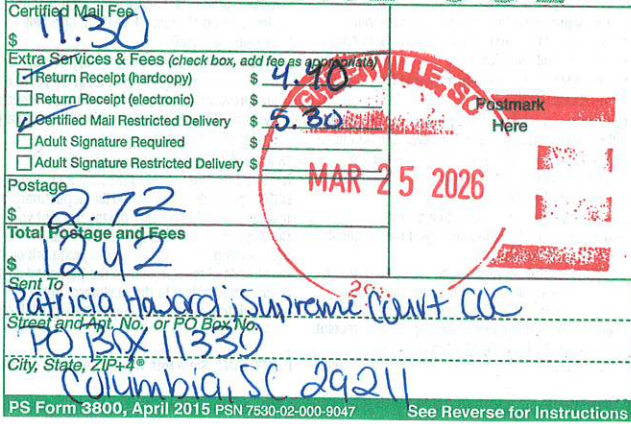 Certified Mail Fee
$ 11.30
Extra Services & Fees (check box, add fee as appropriate)
Return Receipt (hardcopy) $ 4.40
Return Receipt (electronic) $
Certified Mail Restricted Delivery $ 5.30
Adult Signature Required $
Adult Signature Restricted Delivery $
GREENVILLE, SC
Postmark
Here
MAR 25 2026
Postage
$ 2.72
Total Postage and Fees
$ 12.42
Sent To
Patricia Howard, Supreme Court COC
Street and Apt. No., or PO Box No.
PO BOX 11330
City, State, ZIP+4®
Columbia, SC 29211
PS Form 3800, April 2015 PSN 7530-02-000-9047 See Reverse for Instructions